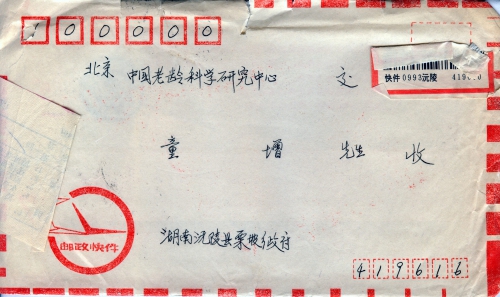 100000
北京 中国老龄科学研究中心 交
快件 0993沅陵
童 增 先生 收
邮政快件
湖南沅陵县栗坡乡政府
419616